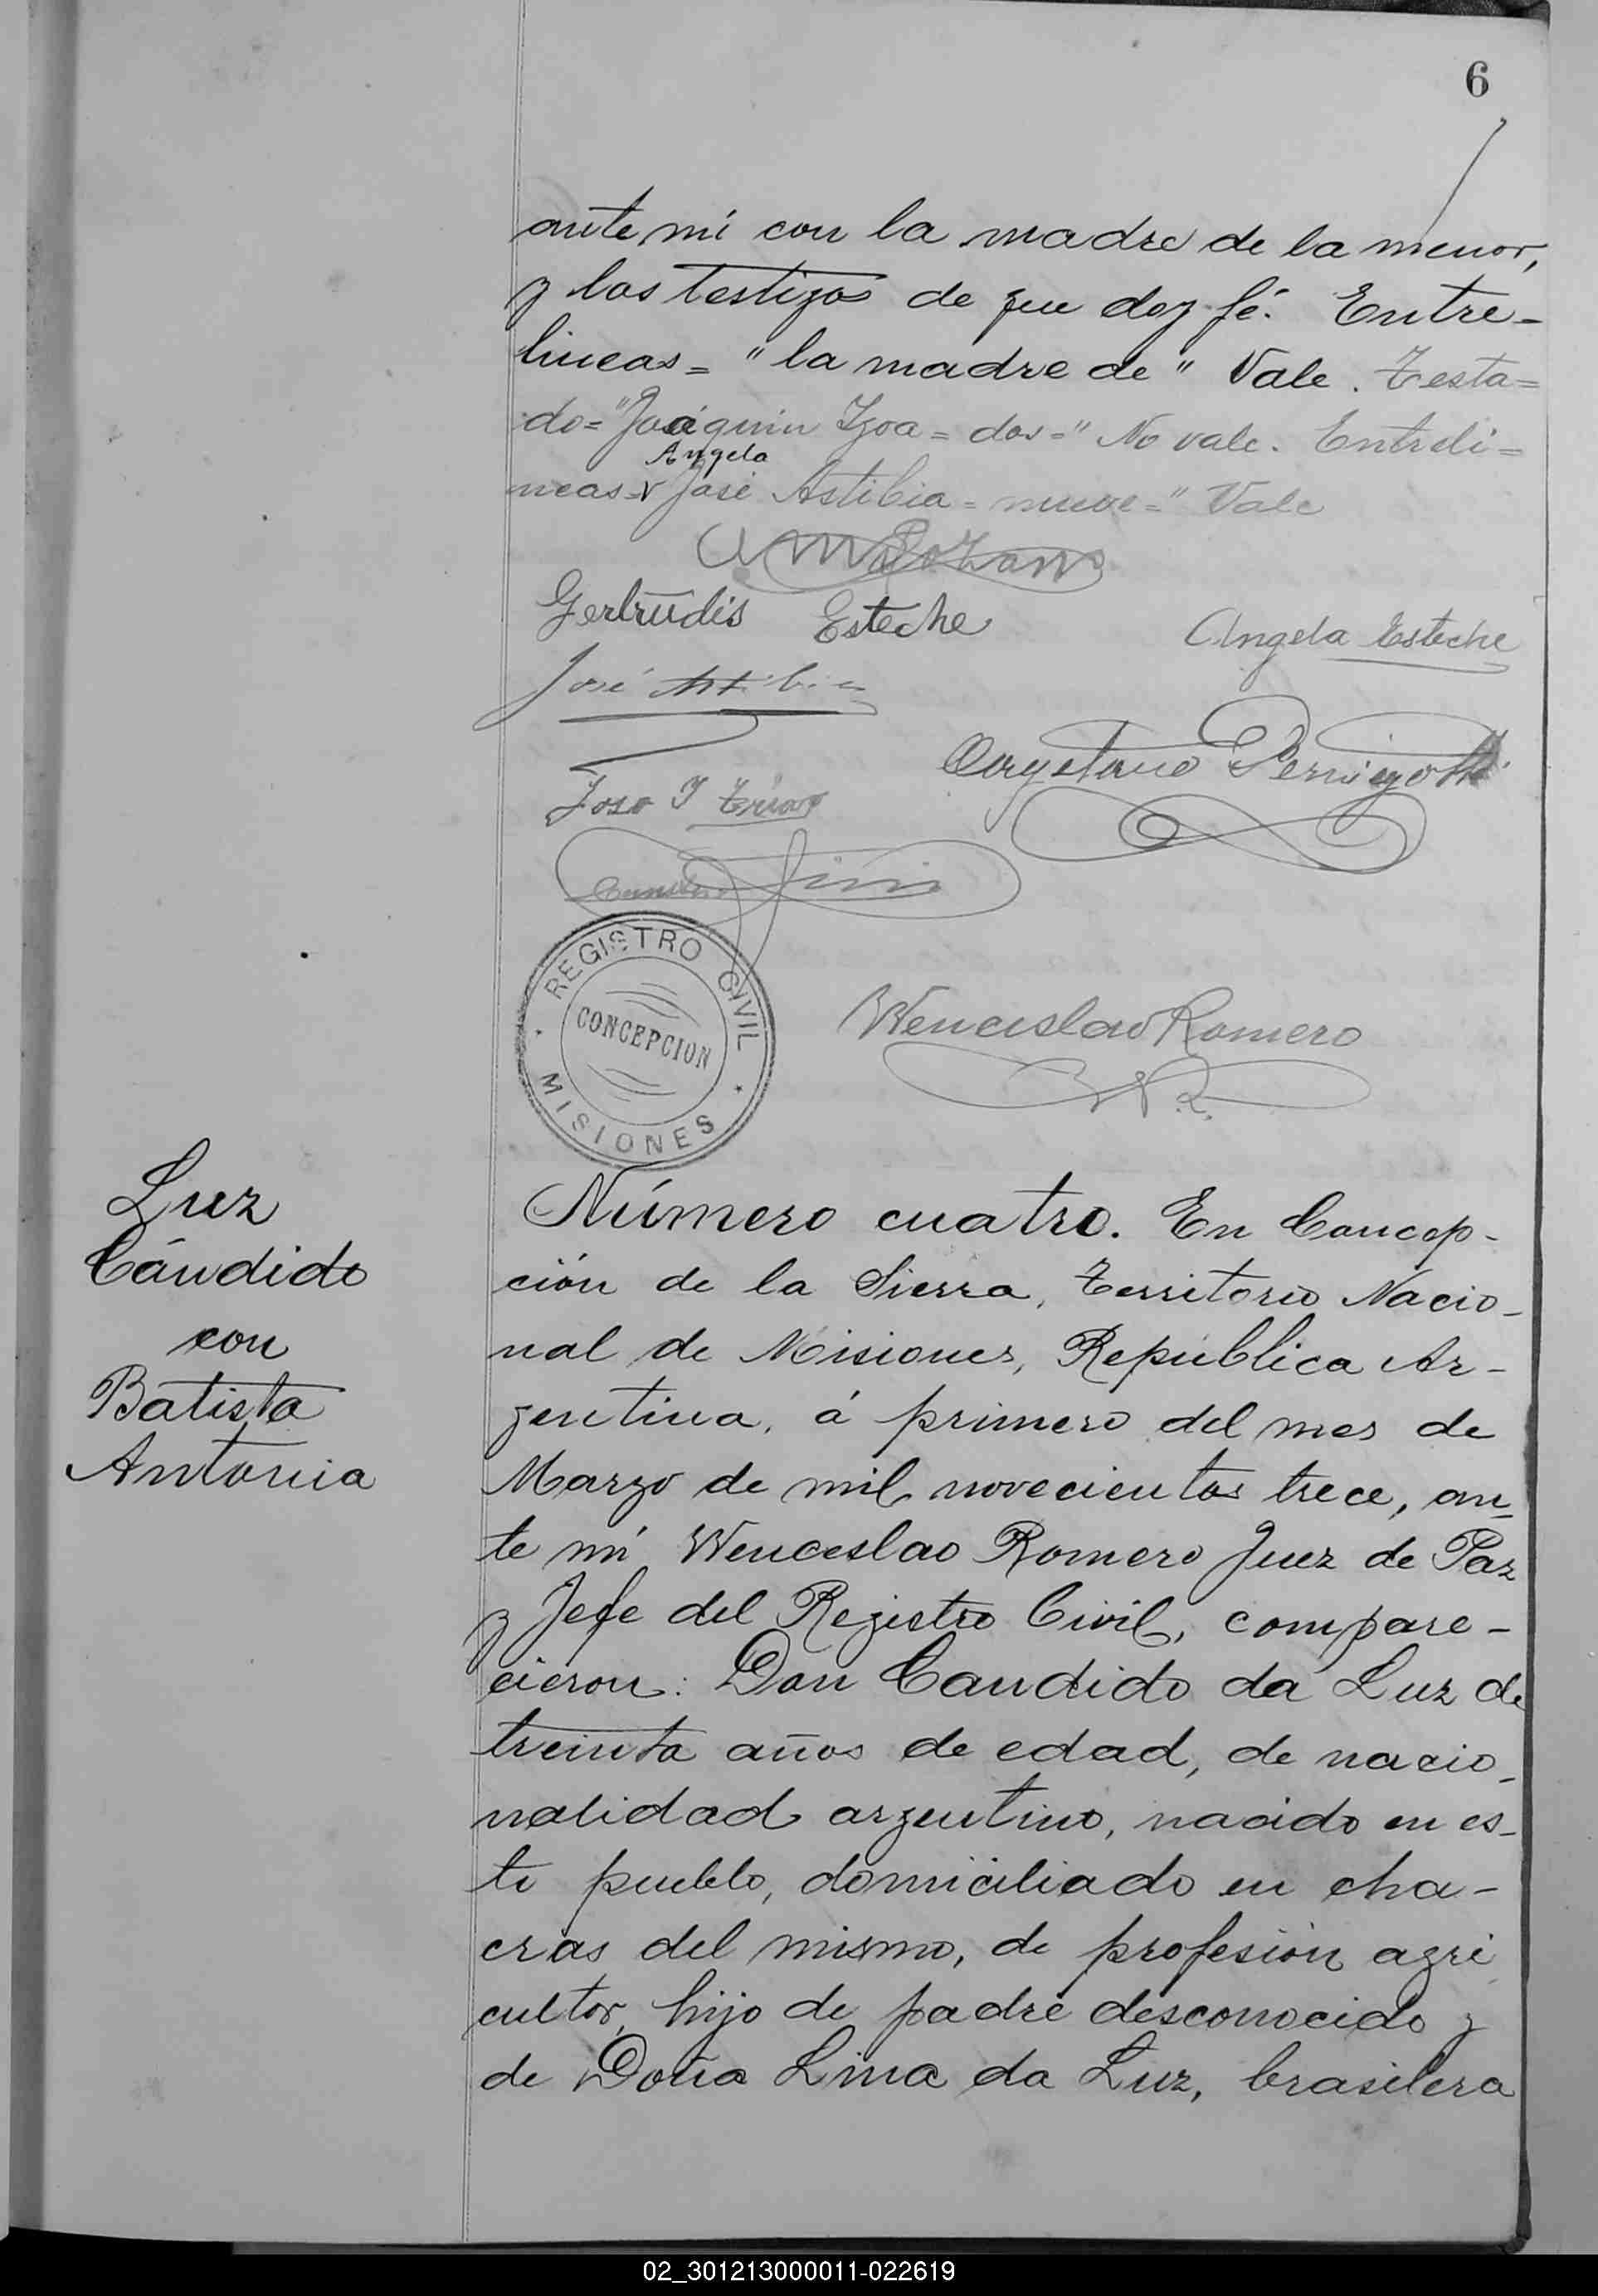 6
ante mí con la madre de la menor,
y los testigos de que doy fé. Entre-
lineas = "la madre de" Vale. Testa=
do = "Joaquin Ygoa = dos =" No vale. Entreli=
Angela
neas = v José Astibia = nueve =" Vale
Gertrudis Esteche
Angela Esteche
José Astibia
Cayetano Pernigotti
José
REGISTRO CIVIL
CONCEPCION
MISIONES
Wenceslao Romero
Luz
Cándido
con
Batista
Antonia
Número cuatro. En Concep-
ción de la Sierra, Territorio Nacio-
nal de Misiones, República Ar-
gentina, á primero del mes de
Marzo de mil novecientos trece, an-
te mí Wenceslao Romero Juez de Paz
y Jefe del Registro Civil, compare-
cieron: Don Candido da Luz de
treinta años de edad, de nacio-
nalidad argentino, nacido en es-
te pueblo, domiciliado en cha-
cras del mismo, de profesión agri
cultor, hijo de padre desconocido y
de Doña Lina da Luz, brasilera
02_301213000011-022619